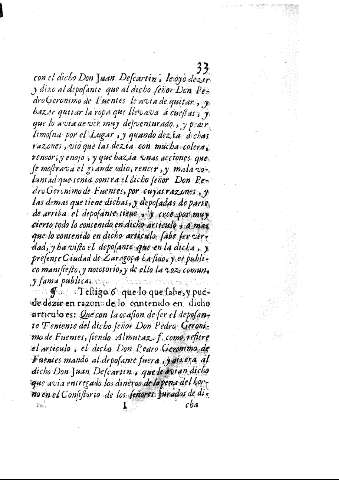 33
con el dicho Don Juan Descartin, le oyò dezir
y dixo al deposante que al dicho señor Don Pe-
dro Geronimo de Fuentes le avia de quitar, y
hazer quitar la ropa que llevava à cuestas, y
que lo avia de ver muy desventurado, y pedir
limosna por el Lugar, y quando dezia dichas
razones, viò que las dezia con mucha colera,
rencor, y enojo, y que hazia unas acciones que
se mostrava el grande odio, rencor, y mala vo-
luntad que tenia contra el dicho señor Don Pe-
dro Geronimo de Fuentes, por cuyas razones, y
las demas que tiene dichas, y deposadas de parte
de arriba el deposante tiene, y cree por muy
cierto todo lo contenido en dicho articulo, a mas
que lo contenido en dicho articulo sabe ser ver-
dad, y ha visto el deposante que en la dicha, y
presente Ciudad de Zaragoça ha sido, y es publi-
co manifiesto, y notorio, y de ello la voz comun,
y fama publica.
¶ Testigo 6 que lo que sabe, y pue-
de dezir en razon de lo contenido en dicho
articulo es: Que con la ocasion de ser el deposan-
te Teniente del dicho señor Don Pedro Geroni-
mo de Fuentes, siendo Almutaz. f. como refiere
el articulo, el dicho Don Pedro Geronimo de
Fuentes mandò al deposante fuera, y dixera al
dicho Don Juan Descartin, que le avian dicho
que avia entregado los dineros de la pena del hor-
no en el Consistorio de los señores Jurados de di-
I cha